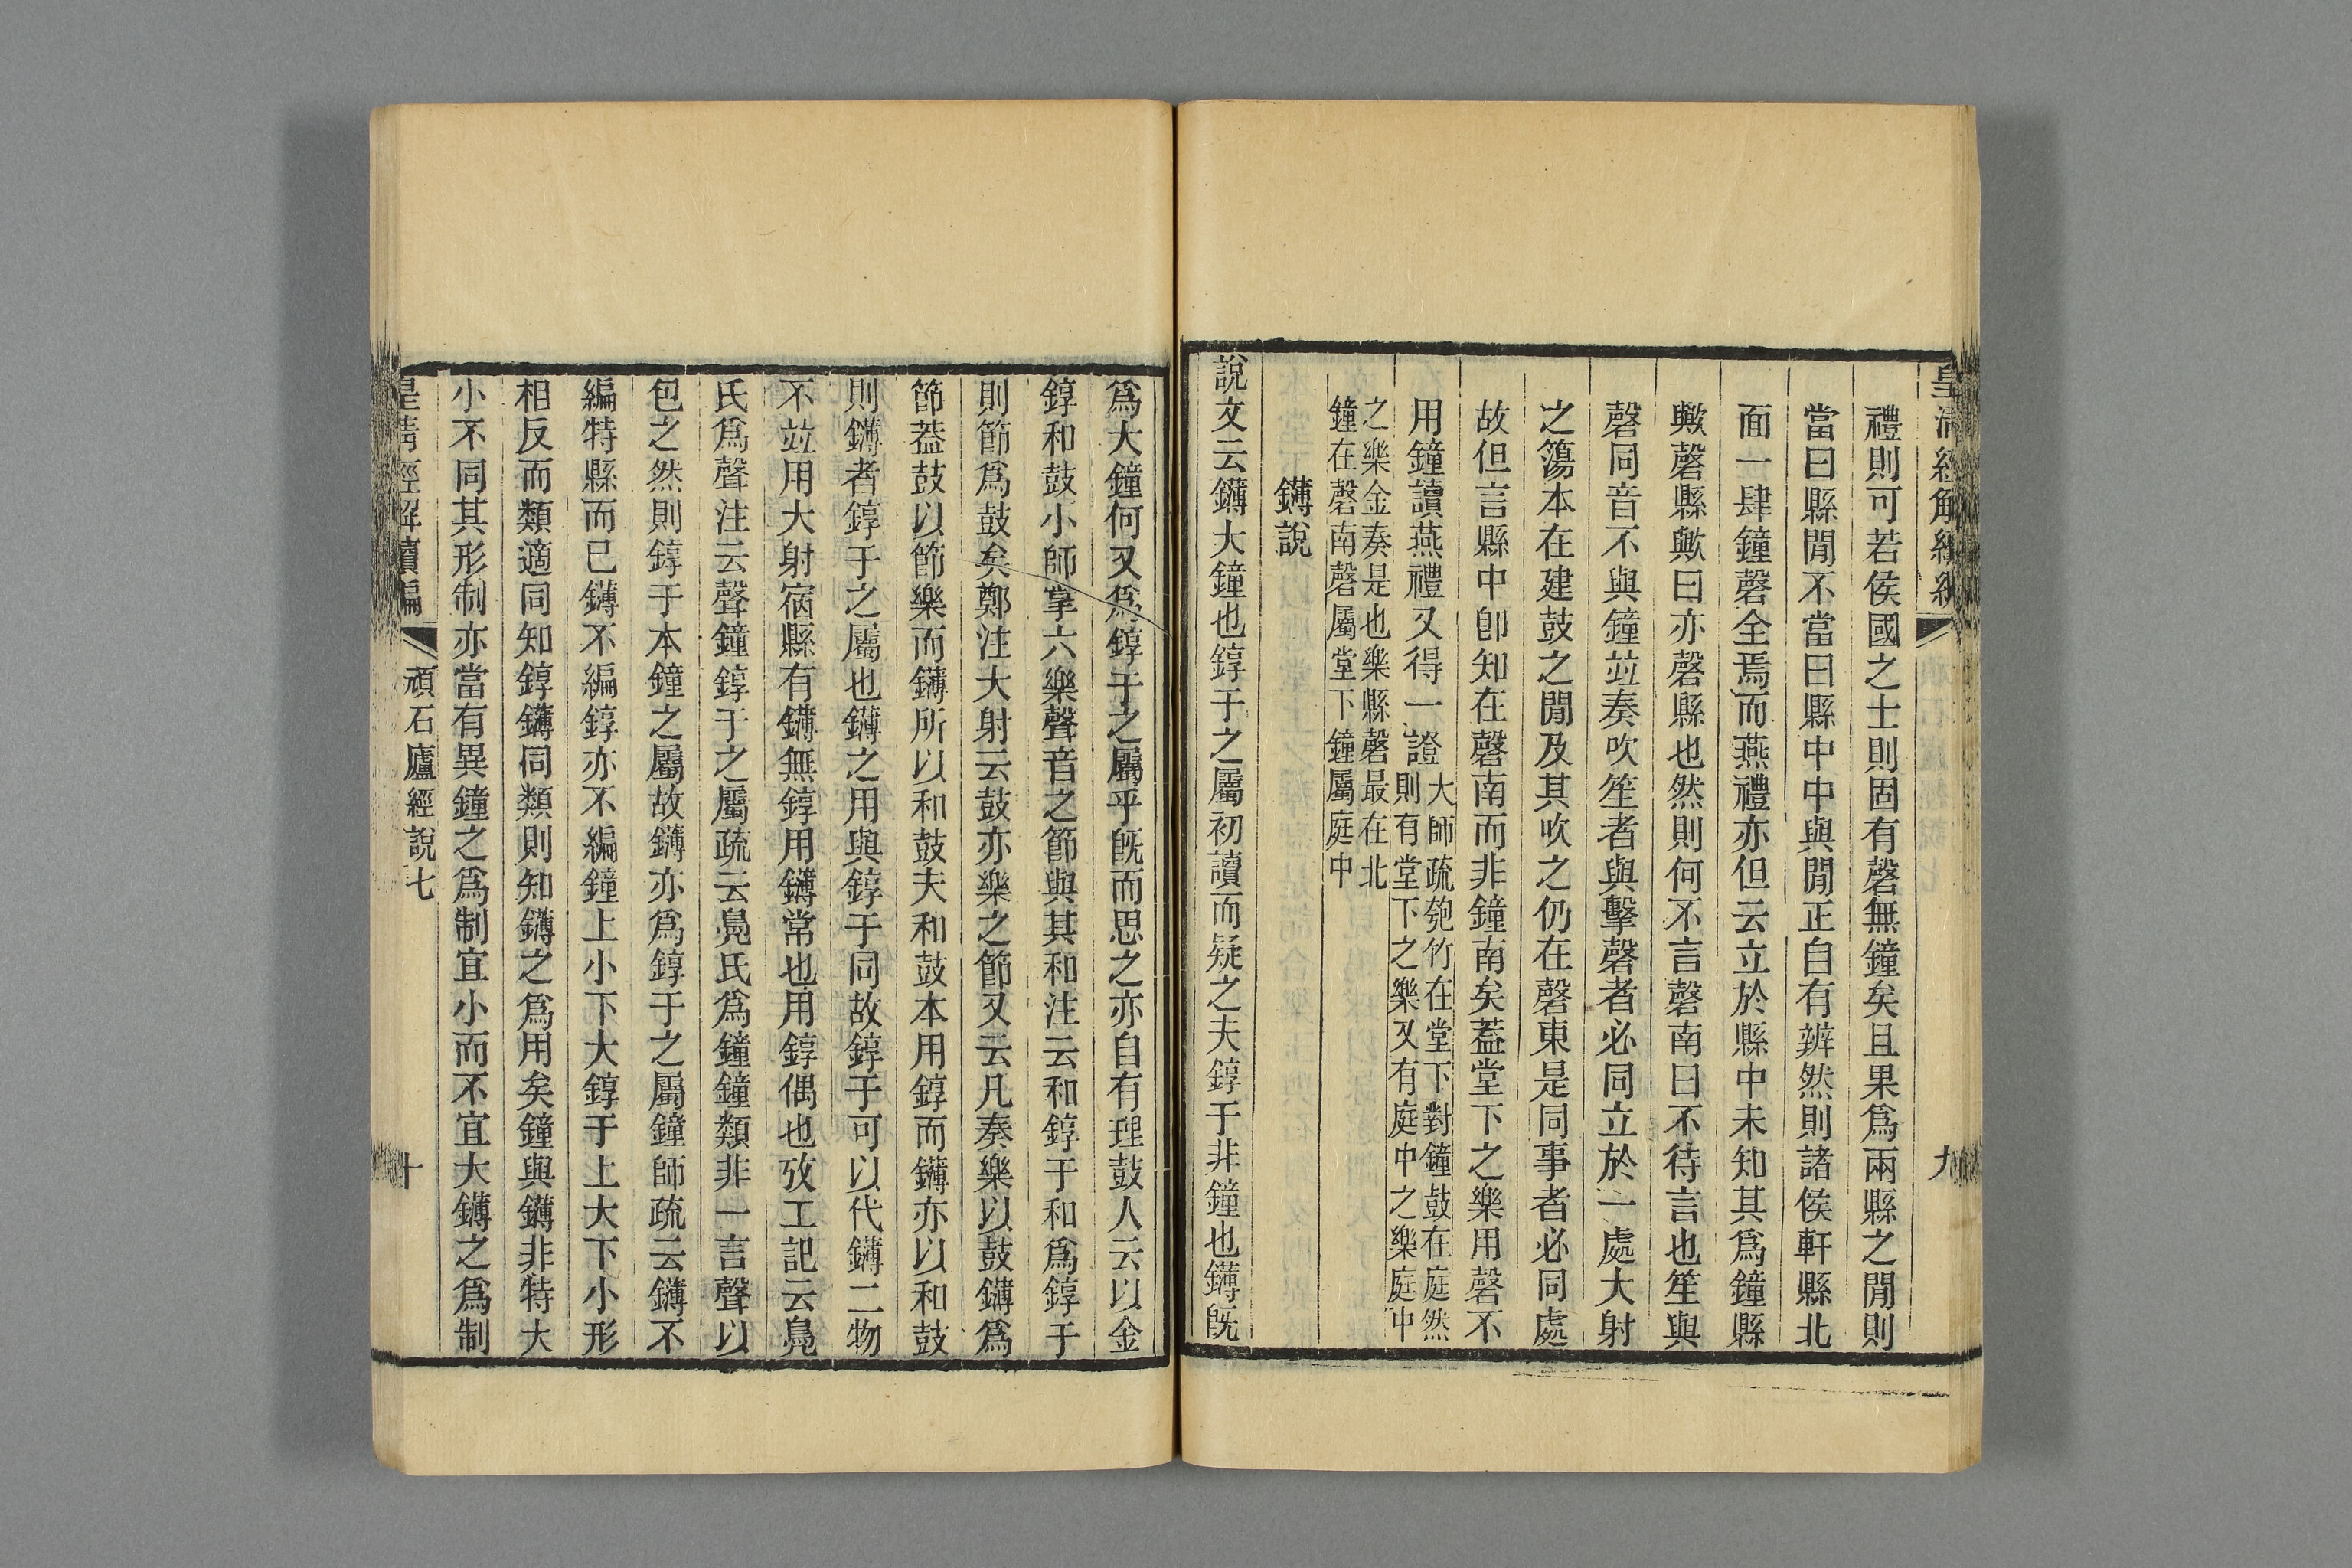 皇清經解續編
九
禮則可若侯國之士則固有磬無鐘矣且果爲兩縣之閒則
當曰縣閒不當曰縣中中與閒正自有辨然則諸侯軒縣北
面一肆鐘磬全焉而燕禮亦但云立於縣中未知其爲鐘縣
歟磬縣歟曰亦磬縣也然則何不言磬南曰不待言也笙與
磬同音不與鐘竝奏吹笙者與擊磬者必同立於一處大射
之簜本在建鼓之閒及其吹之仍在磬東是同事者必同處
故但言縣中卽知在磬南而非鐘南矣葢堂下之樂用磬不
用鐘讀燕禮又得一證
大師疏匏竹在堂下對鐘鼓在庭然
則有堂下之樂又有庭中之樂庭中
之樂金奏是也樂縣磬最在北
鐘在磬南磬屬堂下鐘屬庭中
鑮說
說文云鑮大鐘也錞于之屬初讀而疑之夫錞于非鐘也鑮旣
爲大鐘何又爲錞于之屬乎旣而思之亦自有理鼓人云以金
錞和鼓小師掌六樂聲音之節與其和注云和錞于和爲錞于
則節爲鼓矣鄭注大射云鼓亦樂之節又云凡奏樂以鼓鑮爲
節葢鼓以節樂而鑮所以和鼓夫和鼓本用錞而鑮亦以和鼓
則鑮者錞于之屬也鑮之用與錞于同故錞于可以代鑮二物
不竝用大射宿縣有鑮無錞用鑮常也用錞偶也攷工記云鳧
氏爲聲注云聲鐘錞于之屬疏云鳧氏爲鐘鐘類非一言聲以
包之然則錞于本鐘之屬故鑮亦爲錞于之屬鐘師疏云鑮不
編特縣而已鑮不編錞亦不編鐘上小下大錞于上大下小形
相反而類適同知錞鑮同類則知鑮之爲用矣鐘與鑮非特大
小不同其形制亦當有異鐘之爲制宜小而不宜大鑮之爲制
皇清經解續編
頑石廬經說七
十